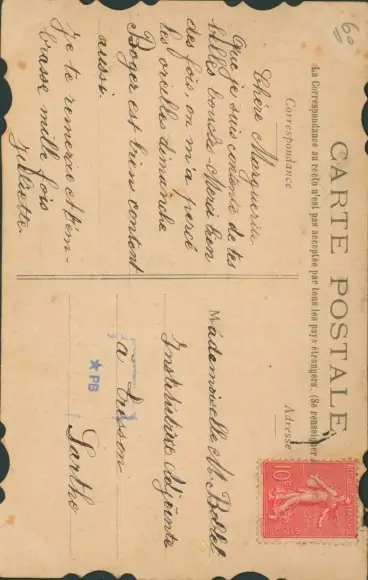 CARTE POSTALE
La Correspondance au recto n'est pas acceptée par tous les pays étrangers. (Se renseigner à
Correspondance
Adresse
60
Chère Marguerite
Que je suis contente de tes
belles boucles. Merci bien
des fois, on m'a percé
les oreilles dimanche
Roger est bien content
aussi.
Je te remercie et t'em-
brasse mille fois
Juliette.
Mademoiselle M.
Institutrice Adjointe
à
Sarthe
★ PB
10